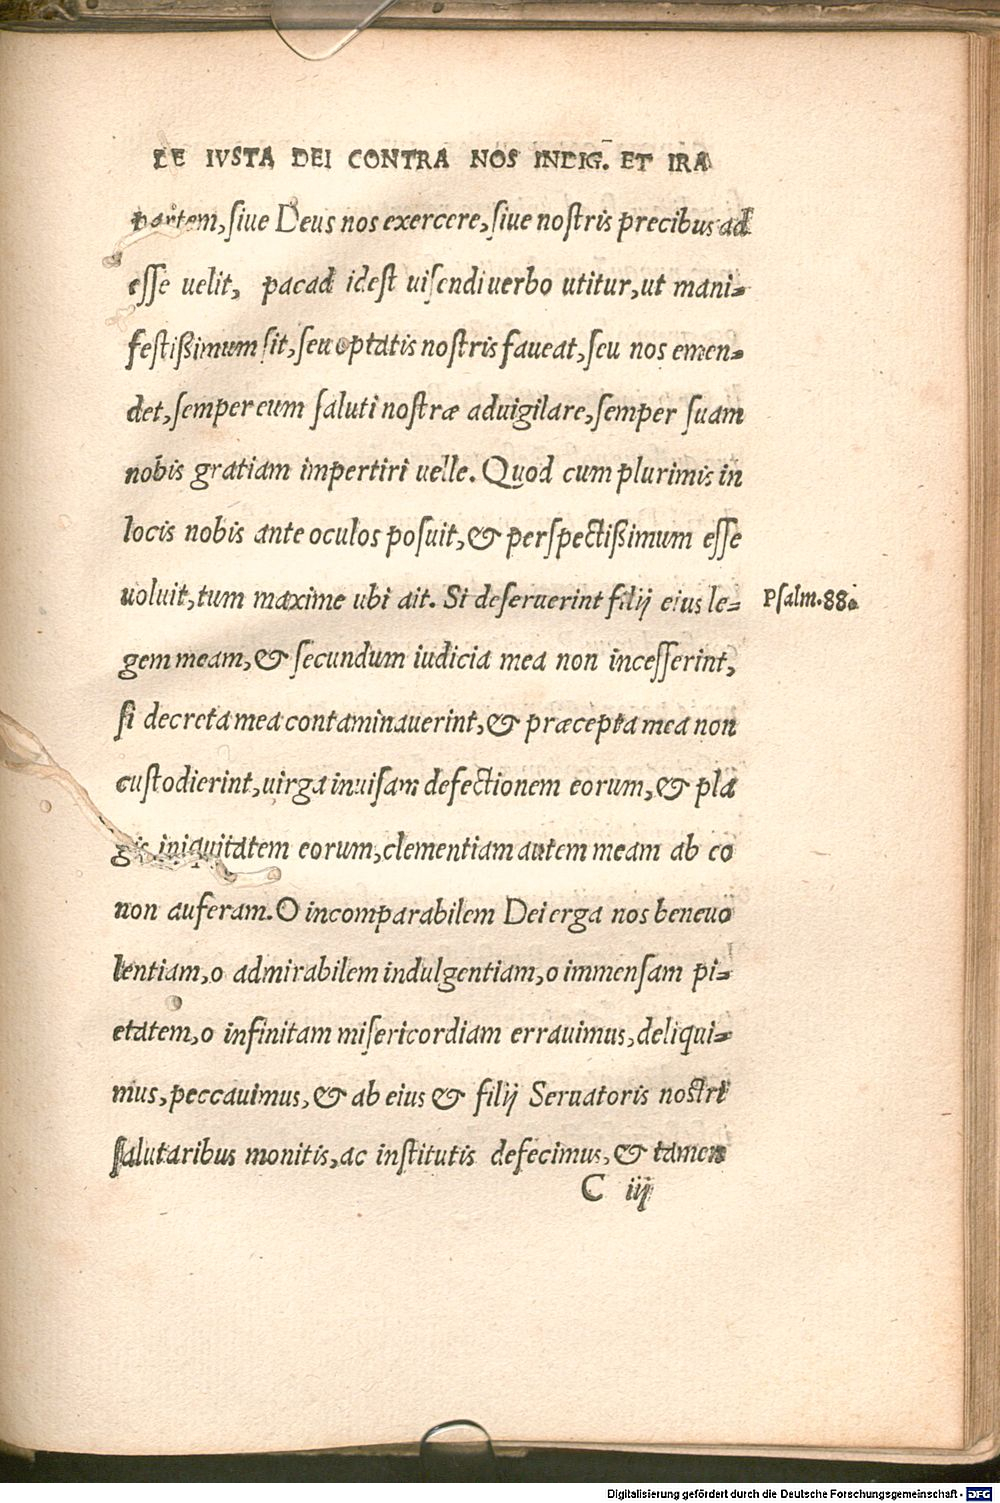 DE IVSTA DEI CONTRA NOS INDIG̅. ET IRA
partem, ſiue Deus nos exercere, ſiue noſtris precibus ad
eſſe uelit, pacad ideſt uiſendi uerbo utitur, ut mani-
feſtißimum ſit, ſeu optatis noſtris faueat, ſeu nos emen-
det, ſemper eum ſaluti noſtræ aduigilare, ſemper ſuam
nobis gratiam impertiri uelle. Quod cum plurimis in
locis nobis ante oculos poſuit, & perſpectißimum eſſe
uoluit, tum maxime ubi ait. Si deſeruerint filij eius le-
Pſalm. 88.
gem meam, & ſecundum iudicia mea non inceſſerint,
ſi decreta mea contaminauerint, & præcepta mea non
cuſtodierint, uirga inuiſam defectionem eorum, & pla
gis iniquitatem eorum, clementiam autem meam ab eo
non auferam. O incomparabilem Dei erga nos beneuo
lentiam, o admirabilem indulgentiam, o immenſam pi-
etatem, o infinitam miſericordiam errauimus, deliqui-
mus, peccauimus, & ab eius & filij Seruatoris noſtri
ſalutaribus monitis, ac inſtitutis defecimus, & tamen
C iij
Digitalisierung gefördert durch die Deutsche Forschungsgemeinschaft - DFG